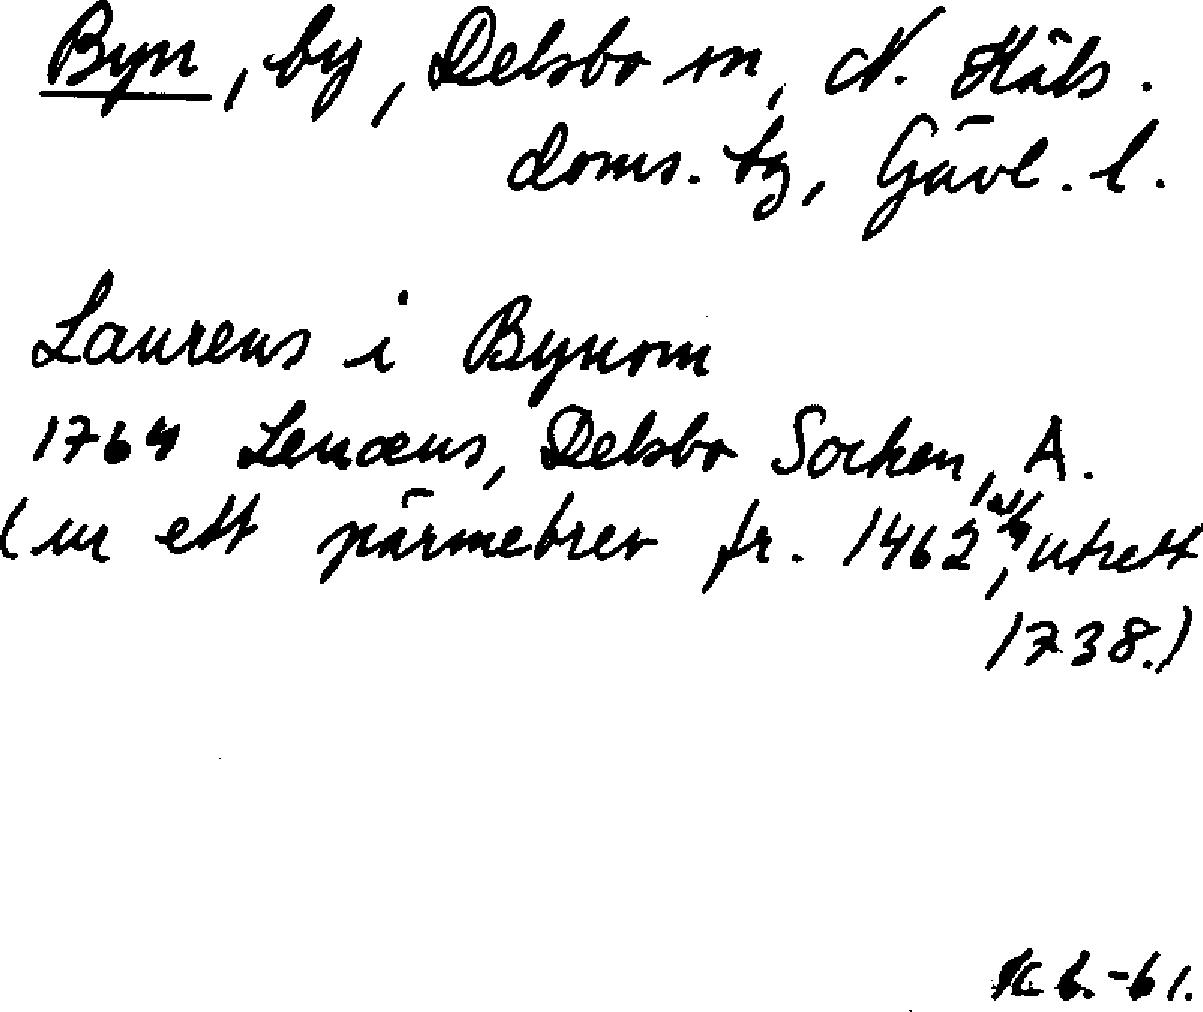 Byn, by, Delsbo sn, N. Häls.
doms. by, Gävl. l.
Laurens i Bynom
1764 Lenæus, Delsbo Socken, A.
(ur ett pärmebrev fr. 1462, utrett
1738.)
K. b. -61.